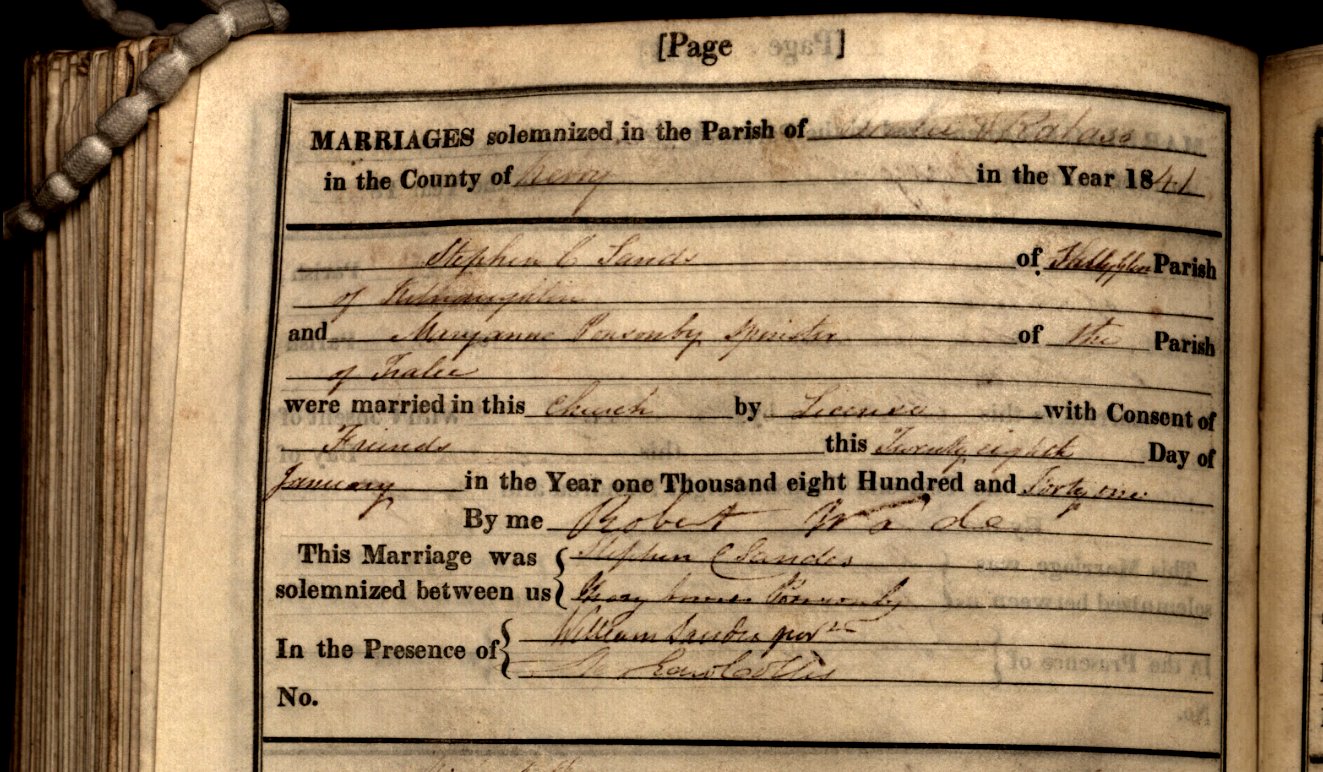 [Page ]
MARRIAGES solemnized in the Parish of Tralee & Ratass
in the County of Kerry in the Year 1841
Stephen C Sands of Parish
of Kilnaughtin
and Maryanne Ponsonby Spinster of the Parish
of Tralee
were married in this Church by License with Consent of
Friends this Twenty eighth Day of
January in the Year one Thousand eight Hundred and Forty one
By me Robert Wade
This Marriage was Stephen C Sandes
solemnized between us Mary Ponsonby
In the Presence of William Sandes
Collis
No.